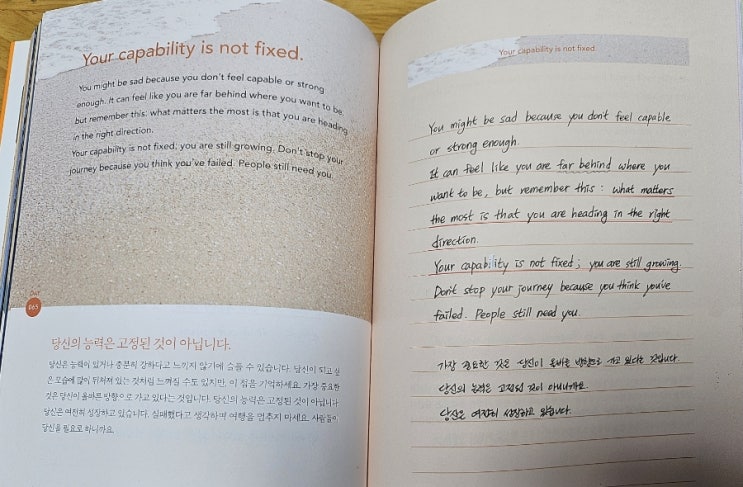 Your capability is not fixed.
You might be sad because you don't feel capable or strong
enough. It can feel like you are far behind where you want to be,
but remember this: what matters the most is that you are heading
in the right direction.
Your capability is not fixed; you are still growing. Don't stop your
journey because you think you've failed. People still need you.
Day
065
당신의 능력은 고정된 것이 아닙니다.
당신은 능력이 있거나 충분히 강하다고 느끼지 않기에 슬플 수 있습니다. 당신이 되고 싶
은 모습에 많이 뒤처져 있는 것처럼 느껴질 수도 있지만, 이 점을 기억하세요. 가장 중요한
것은 당신이 올바른 방향으로 가고 있다는 것입니다. 당신의 능력은 고정된 것이 아닙니다.
당신은 여전히 성장하고 있습니다. 실패했다고 생각하며 여행을 멈추지 마세요. 사람들이
당신을 필요로 하니까요.
Your capability is not fixed.
You might be sad because you don't feel capable
or strong enough.
It can feel like you are far behind where you
want to be, but remember this : what matters
the most is that you are heading in the right
direction.
Your capability is not fixed; you are still growing.
Don't stop your journey because you think you've
failed. People still need you.
가장 중요한 것은 당신이 올바른 방향으로 가고 있다는 것입니다.
당신의 능력은 고정된 것이 아니에요.
당신은 여전히 성장하고 있습니다.